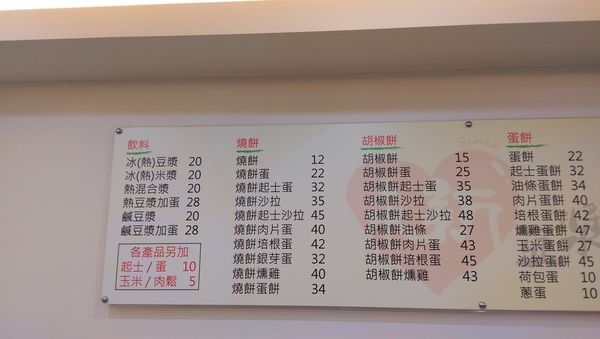 飲料
冰(熱)豆漿 20
冰(熱)米漿 20
熱混合漿 20
熱豆漿加蛋 28
鹹豆漿 20
鹹豆漿加蛋 28
各產品另加
起士/蛋 10
玉米/肉鬆 5
燒餅
燒餅 12
燒餅蛋 22
燒餅起士蛋 32
燒餅沙拉 35
燒餅起士沙拉 45
燒餅肉片蛋 40
燒餅培根蛋 42
燒餅銀芽蛋 32
燒餅燻雞 40
燒餅蛋餅 34
胡椒餅
胡椒餅 15
胡椒餅蛋 25
胡椒餅起士蛋 35
胡椒餅沙拉 38
胡椒餅起士沙拉 48
胡椒餅油條 27
胡椒餅肉片蛋 43
胡椒餅培根蛋 45
胡椒餅燻雞 43
Since
蛋餅
蛋餅 22
起士蛋餅 32
油條蛋餅 34
肉片蛋餅 40
培根蛋餅 42
燻雞蛋餅 47
玉米蛋餅 27
沙拉蛋餅 45
荷包蛋 10
蔥蛋 10